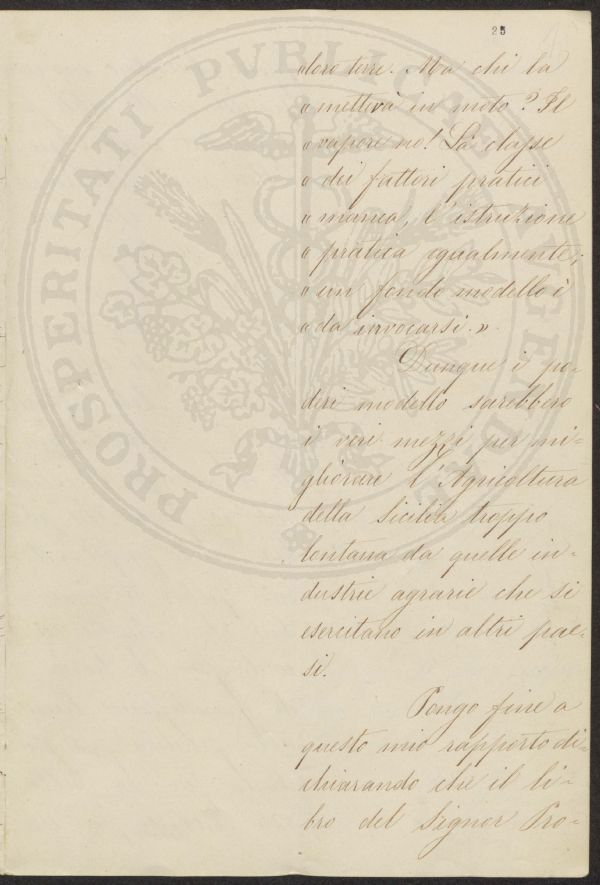 25
«loro terre. Ma chi la
«metterà in moto? Il
«vapore no! La classe
«dei fattori pratici
«manca, l'istruzione
«pratica egualmente;
«un fondo modello è
«da invocarsi.»
Dunque i po-
deri modello sarebbero
i veri mezzi per mi-
gliorare l'Agricoltura
della Sicilia troppo
lontana da quelle in-
dustrie agrarie che si
esercitano in altri pae-
si.
Pongo fine a
questo mio rapporto di-
chiarando che il li-
bro del Signor Pro-
PROSPERITATI PVBLICAE AVGENDAE